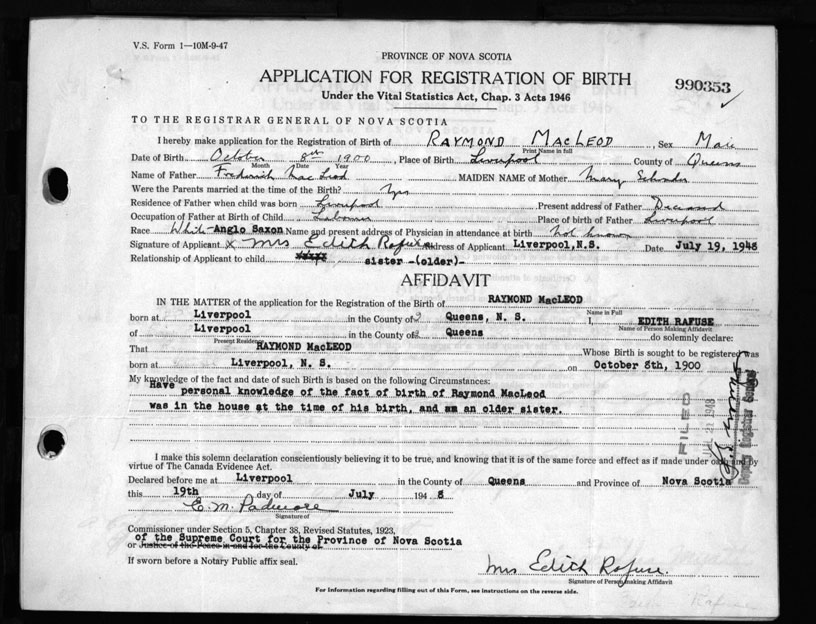 V.S. Form 1—10M-9-47
PROVINCE OF NOVA SCOTIA
APPLICATION FOR REGISTRATION OF BIRTH
990353
Under the Vital Statistics Act, Chap. 3 Acts 1946
TO THE REGISTRAR GENERAL OF NOVA SCOTIA
I hereby make application for the Registration of Birth of RAYMOND MacLEOD, Sex Male
Print Name in full
Date of Birth October 8th 1900, Place of Birth Liverpool County of Queens
Month Date Year
Name of Father Frederick MacLeod MAIDEN NAME of Mother Mary
Were the Parents married at the time of the Birth? Yes
Residence of Father when child was born Liverpool Present address of Father Deceased
Occupation of Father at Birth of Child Labourer Place of birth of Father Liverpool
Race White-Anglo Saxon Name and present address of Physician in attendance at birth not known
Signature of Applicant X Mrs Edith Rafuse Address of Applicant Liverpool,N.S. Date July 19, 1948
Relationship of Applicant to child sister -(older)-
AFFIDAVIT
IN THE MATTER of the application for the Registration of the Birth of RAYMOND MacLEOD
Name in Full
born at Liverpool in the County of Queens, N. S. I, EDITH RAFUSE
Name of Person Making Affidavit
of Liverpool in the County of Queens do solemnly declare:
Present Residence
That RAYMOND MacLEOD Whose Birth is sought to be registered was
born at Liverpool, N. S. on October 8th, 1900
My knowledge of the fact and date of such Birth is based on the following Circumstances:
Have personal knowledge of the fact of birth of Raymond MacLeod
was in the house at the time of his birth, and am an older sister.
FILED
21 1948
Deputy Registrar General
I make this solemn declaration conscientiously believing it to be true, and knowing that it is of the same force and effect as if made under oath and by
virtue of The Canada Evidence Act.
Declared before me at Liverpool in the County of Queens and Province of Nova Scotia
this 19th day of July 1948
E. M. Padmore
Signature of
Commissioner under Section 5, Chapter 38, Revised Statutes, 1923,
of the Supreme Court for the Province of Nova Scotia
or Justice of the Peace in and for the County of
If sworn before a Notary Public affix seal.
Mrs Edith Rafuse.
Signature of Person making Affidavit
For information regarding filling out of this Form, see instructions on the reverse side.
Rafuse